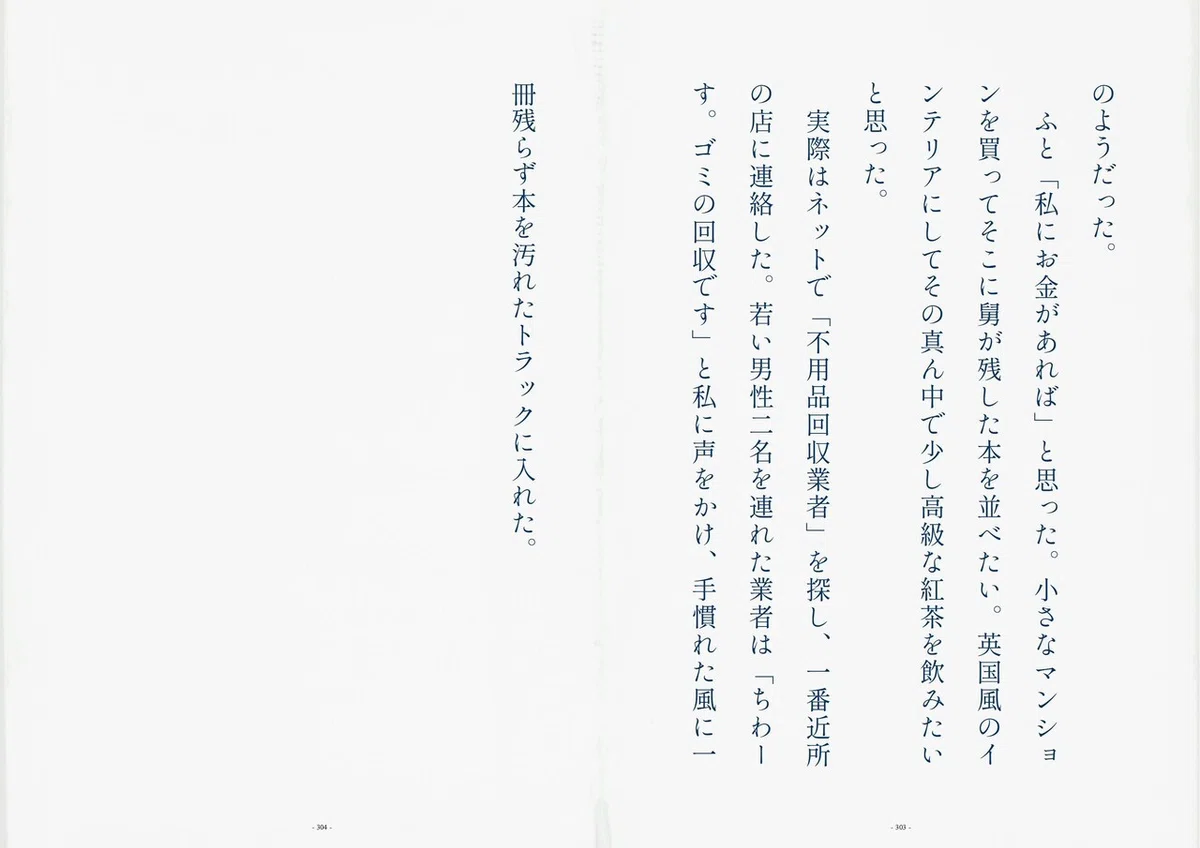 のようだった。
ふと「私にお金があれば」と思った。小さなマンショ
ンを買ってそこに舅が残した本を並べたい。英国風のイ
ンテリアにしてその真ん中で少し高級な紅茶を飲みたい
と思った。
実際はネットで「不用品回収業者」を探し、一番近所
の店に連絡した。若い男性二名を連れた業者は「ちわー
す。ゴミの回収です」と私に声をかけ、手慣れた風に一
- 303 -
冊残らず本を汚れたトラックに入れた。
- 304 -